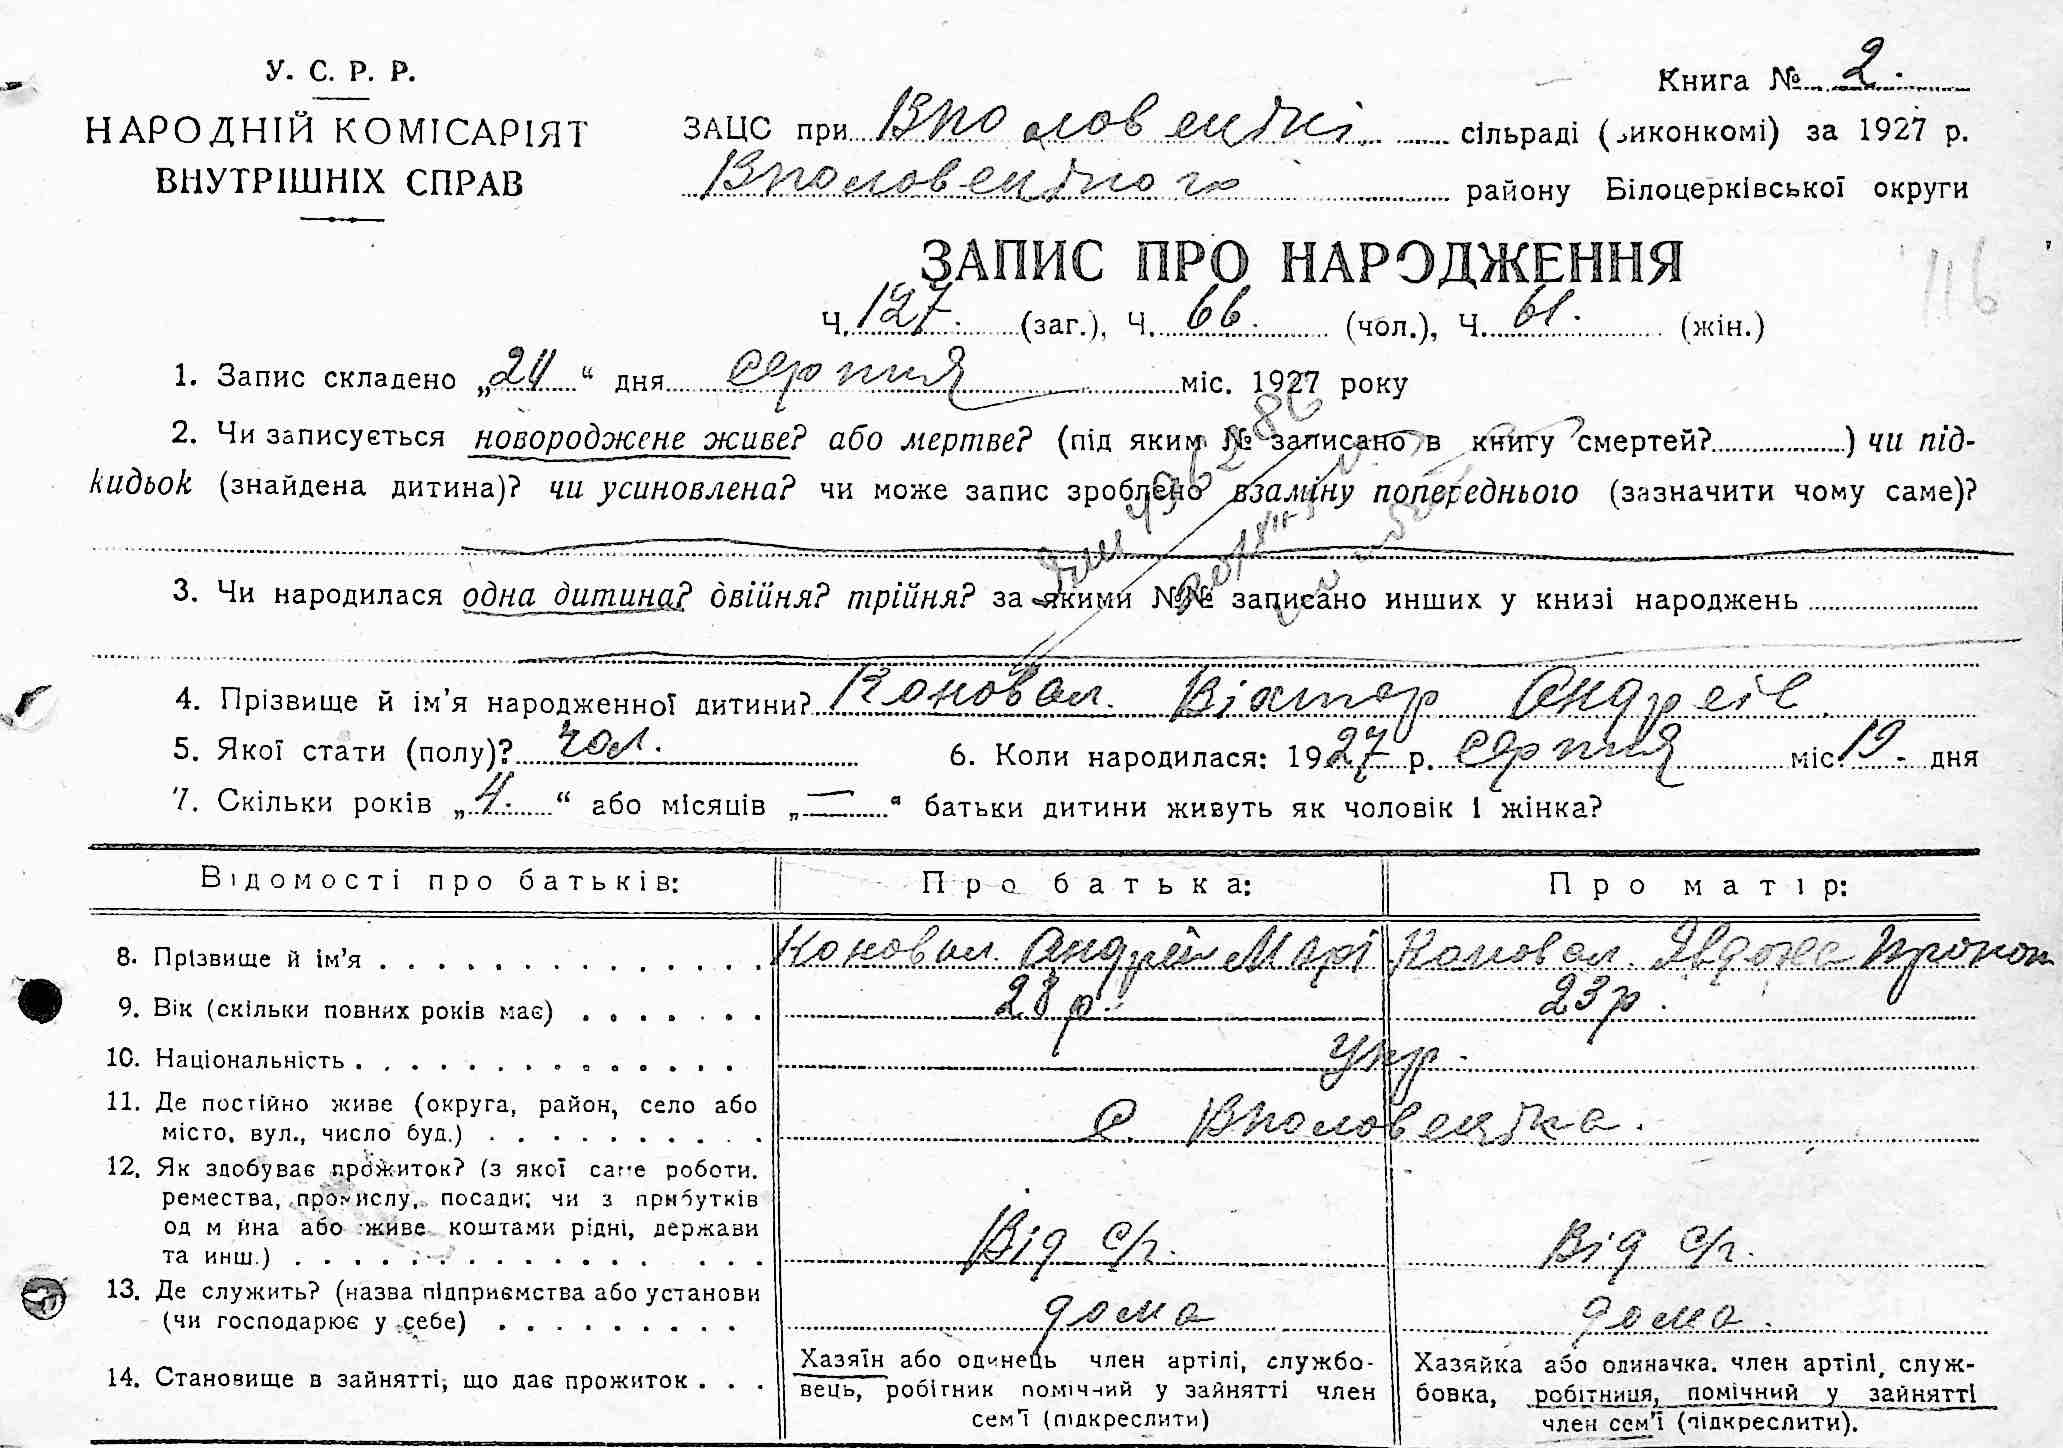 У. С. Р. Р.
НАРОДНІЙ КОМІСАРІЯТ
ВНУТРІШНІХ СПРАВ
Книга № 2.
ЗАЦС при Вполовецькі сільраді (виконкомі) за 1927 р.
Вполовецького району Білоцерківської округи
ЗАПИС ПРО НАРОДЖЕННЯ
116
Ч. 127. (заг.), Ч. 66. (чол.), Ч. 61. (жін.)
1. Запис складено „24“ дня серпня міс. 1927 року
2. Чи записується новороджене живе? або мертве? (під яким № записано в книгу смертей?) чи під-
кидьок (знайдена дитина)? чи усиновлена? чи може запис зроблено взаміну попереднього (зазначити чому саме)?
3. Чи народилася одна дитина? двійня? трійня? за якими №№ записано инших у книзі народжень
4. Прізвище й ім’я народженної дитини? Коновал. Віктор Андреів.
5. Якої стати (полу)? чол. 6. Коли народилася: 1927 р. серпня міс. 19 - дня
7. Скільки років „4.“ або місяців „—“ батьки дитини живуть як чоловік і жінка?
Відомості про батьків: Про батька: Про матір:
8. Прізвище й ім’я Коновал. Андрій Марк Коновал. Явдоха Прокоп
9. Вік (скільки повних років має) 28 р. 23 р.
10. Національність укр.
11. Де постійно живе (округа, район, село або
місто, вул., число буд.) с. Вполовецька.
12. Як здобуває прожиток? (з якої саме роботи,
ремества, промислу, посади; чи з прибутків
од майна або живе коштами рідні, держави
та инш.) Від с/г. Від с/г.
13. Де служить? (назва підприємства або установи
(чи господарює у себе) дома дома.
14. Становище в зайнятті, що дає прожиток
Хазяїн або одинець член артілі, службо-
вець, робітник помічний у зайнятті член
сем’ї (підкреслити)
Хазяйка або одиначка. член артілі, служ-
бовка, робітниця, помічний у зайнятті
член сем’ї (підкреслити).